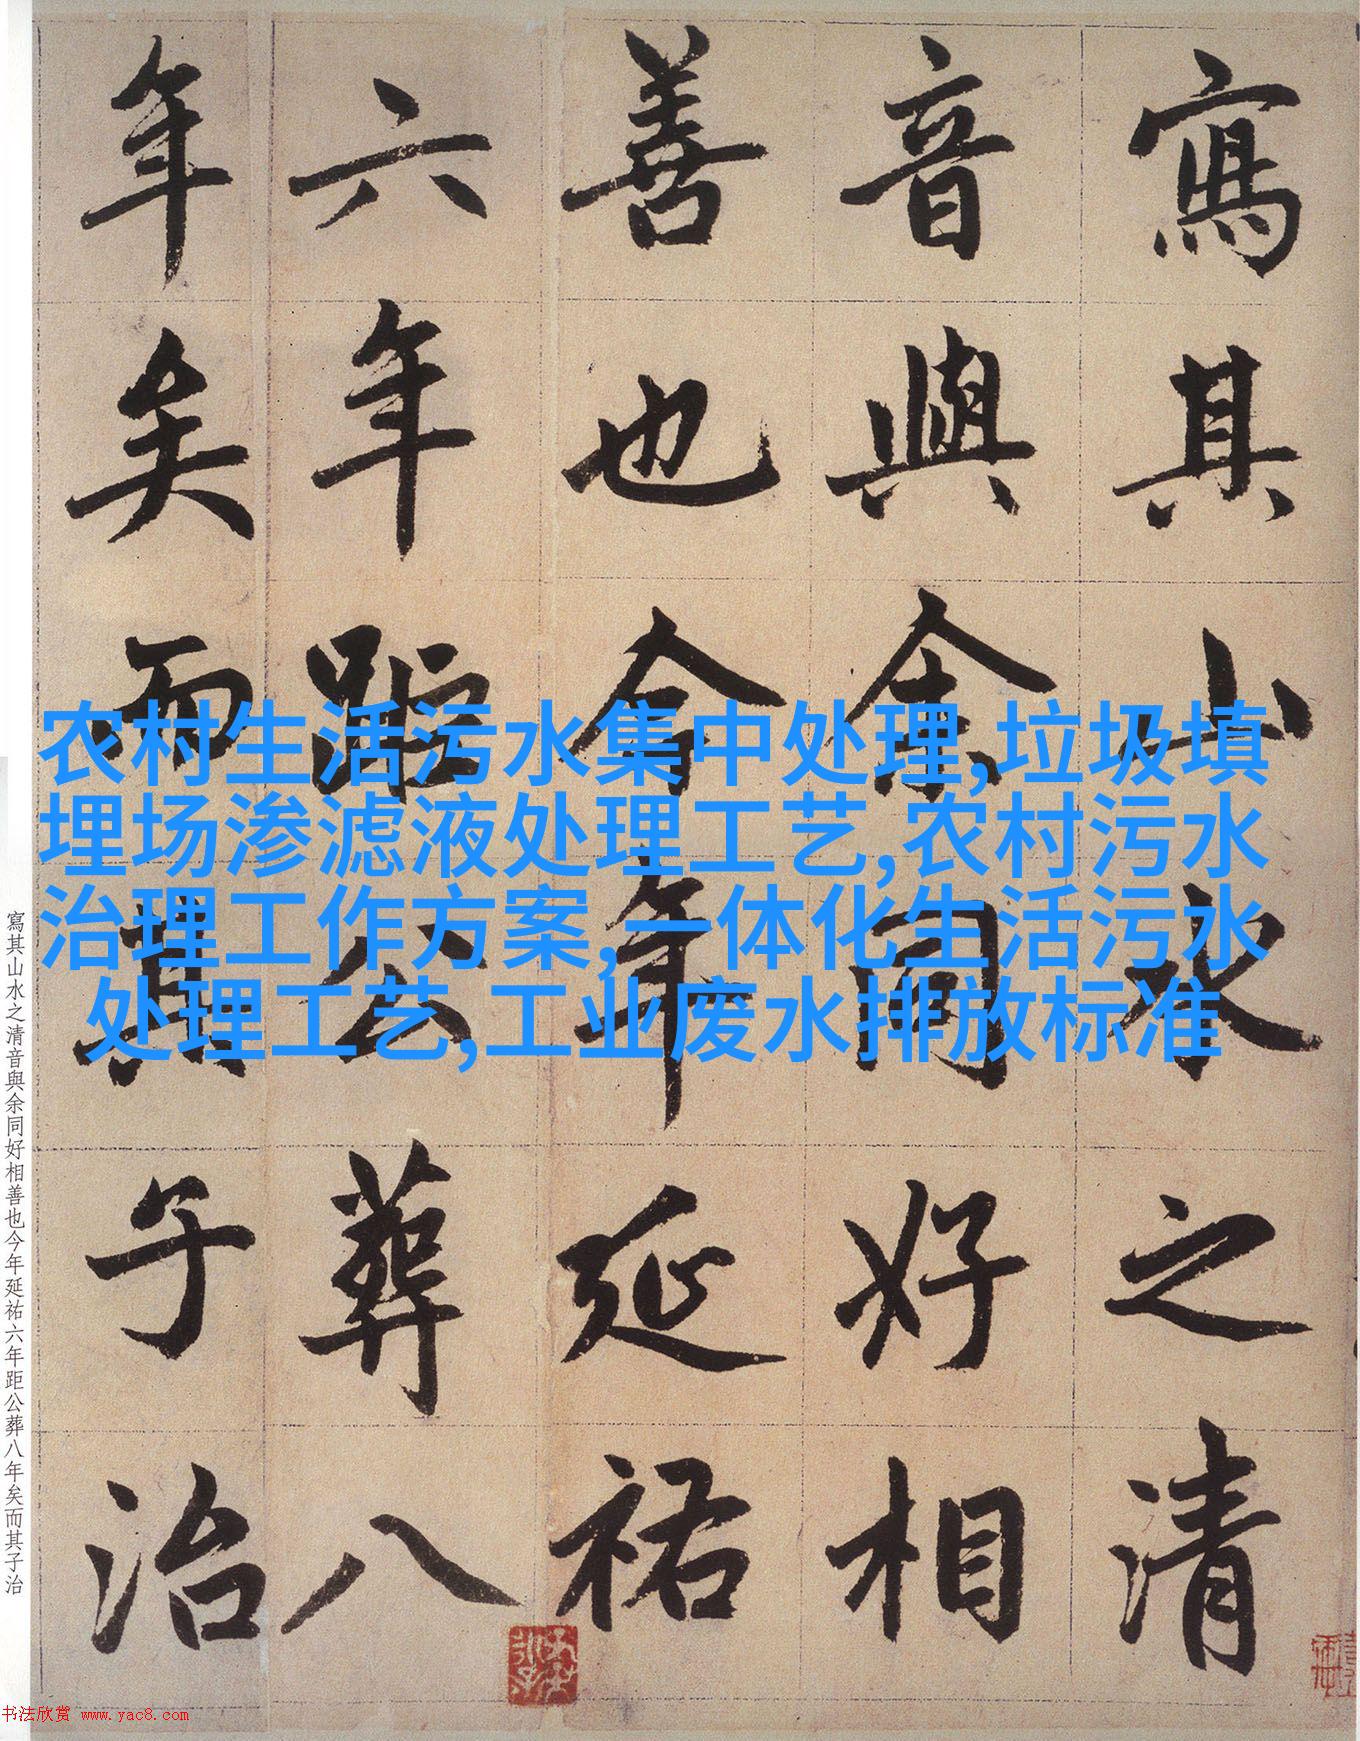 寫其山水之清
音與余同好相
善也今年延祐
六年距公葬八
年矣而其子治
农村生活污水集中处理,垃圾填
埋场渗滤液处理工艺,农村污水
治理工作方案,一体化生活污水
处理工艺,工业废水排放标准
寫其山水之清音與余同好相善也今年延祐六年距公葬八年矣而其子治
书法欣赏 www.yac8.com